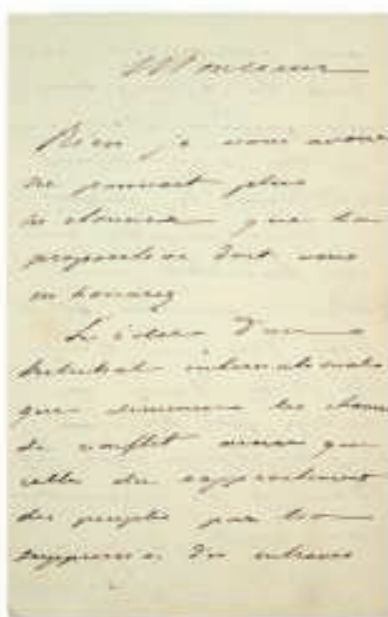 Monsieur
Rien je vous avoue
ne pouvait plus
m'étonner que la
proposition dont vous
m'honorez
L'idée d'un
tribunal international
que diminue les chances
de conflit ainsi que
celle du rapprochement
des peuples par la
suppression des entraves